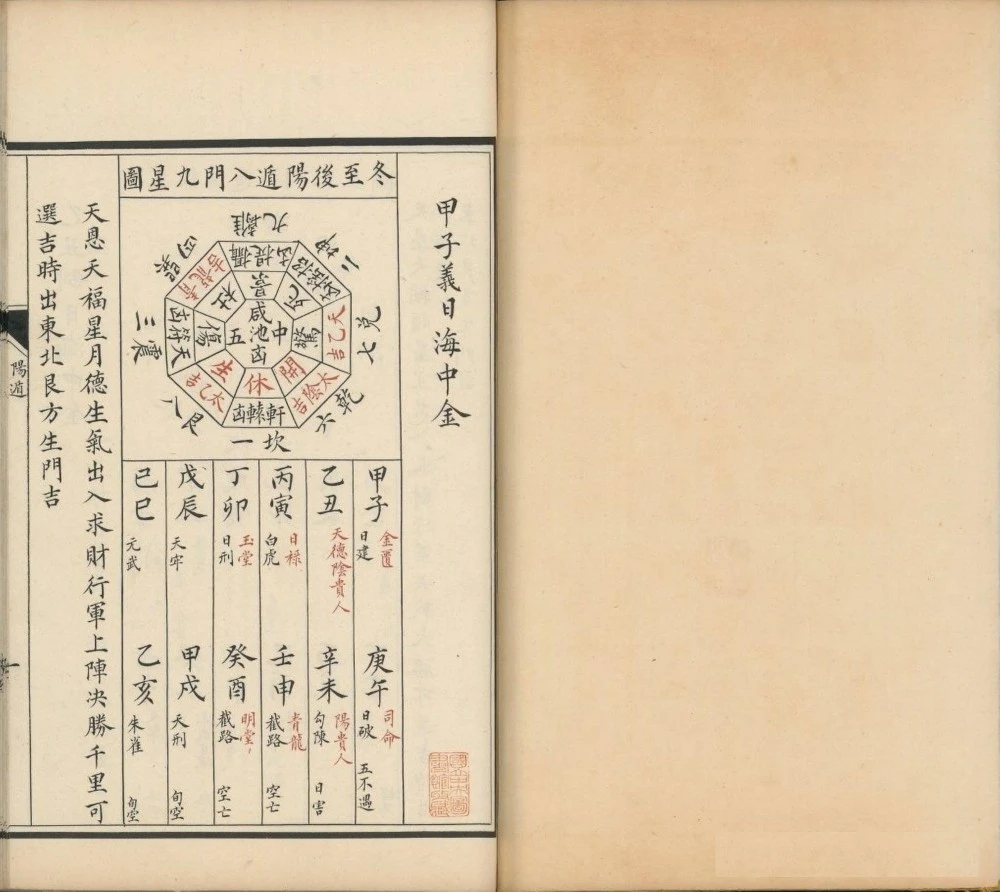 甲子義日海中金
冬至後陽遁八門九星圖
九離
二坤
七兌
六乾
一坎
八艮
三震
四巽
攝提凶
招搖凶
天乙吉
太陰吉
軒轅凶
太乙吉
天符凶
青龍吉
景
死
驚
開
休
生
傷
杜
中五
咸池凶
甲子
金匱
日建
庚午
司命
日破
五不遇
乙丑
天德陰貴人
辛未
陽貴人
勾陳
日害
丙寅
日祿
白虎
壬申
青龍
截路
空亡
丁卯
玉堂
日刑
癸酉
明堂
截路
空亡
戊辰
天牢
甲戌
天刑
旬空
己巳
元武
乙亥
朱雀
旬空
天恩天福星月德生氣出入求財行軍上陣决勝千里可
選吉時出東北艮方生門吉
陽遁
一